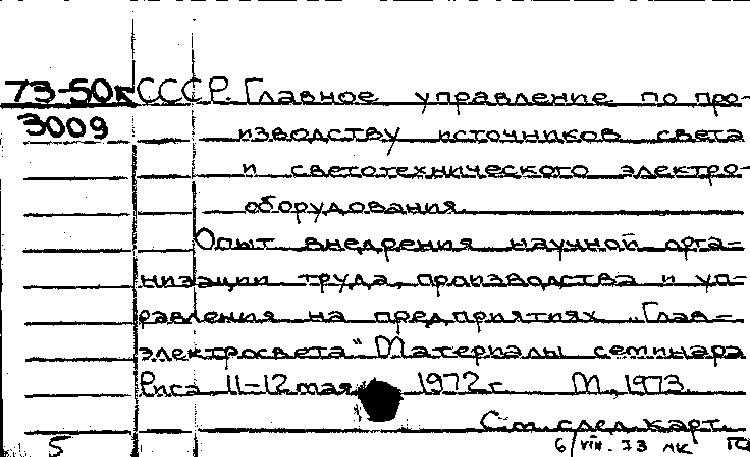 73-50к СССР. Главное управление по про-
3009 изводству источников света
и светотехнического электро-
оборудования.
Опыт внедрения научной орга-
низации труда, производства и уп-
равления на предприятиях „Глав-
электросвета". Материалы семинара
Рига 11-12 мая 1972 г. М., 1973.
См. след. карт.
5 6/VIII. 73 МК